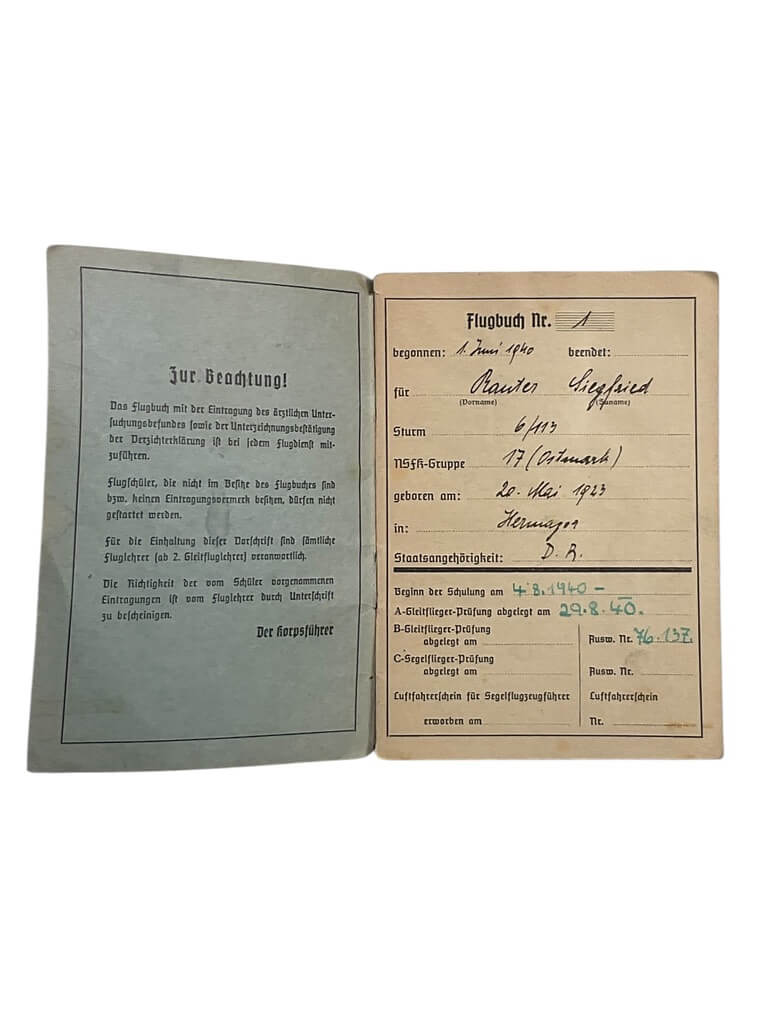 Zur Beachtung!
Das Flugbuch mit der Eintragung des ärztlichen Unter-
suchungsbefundes sowie der Unterzeichnungsbestätigung
der Verzichterklärung ist bei jedem Flugdienst mit-
zuführen.
Flugschüler, die nicht im Besitze des Flugbuches sind
bzw. keinen Eintragungsvermerk besitzen, dürfen nicht
gestartet werden.
Für die Einhaltung dieser Vorschrift sind sämtliche
Fluglehrer (ab 2. Gleitfluglehrer) verantwortlich.
Die Richtigkeit der vom Schüler vorgenommenen
Eintragungen ist vom Fluglehrer durch Unterschrift
zu bescheinigen.
Der Korpsführer
Flugbuch Nr. 1
begonnen: 1. Juni 1940 beendet:
für Rauter Siegfried
(Vorname) (Zuname)
Sturm 6/113
NSFK-Gruppe 17 (Ostmark)
geboren am: 20. Mai 1923
in: Hermagor
Staatsangehörigkeit: D. R.
Beginn der Schulung am 4.8.1940 –
A-Gleitflieger-Prüfung abgelegt am 29.8.40.
B-Gleitflieger-Prüfung
abgelegt am Ausw. Nr. 76.137.
C-Segelflieger-Prüfung
abgelegt am Ausw. Nr.
Luftfahrerschein für Segelflugzeugführer Luftfahrerschein
erworben am Nr.